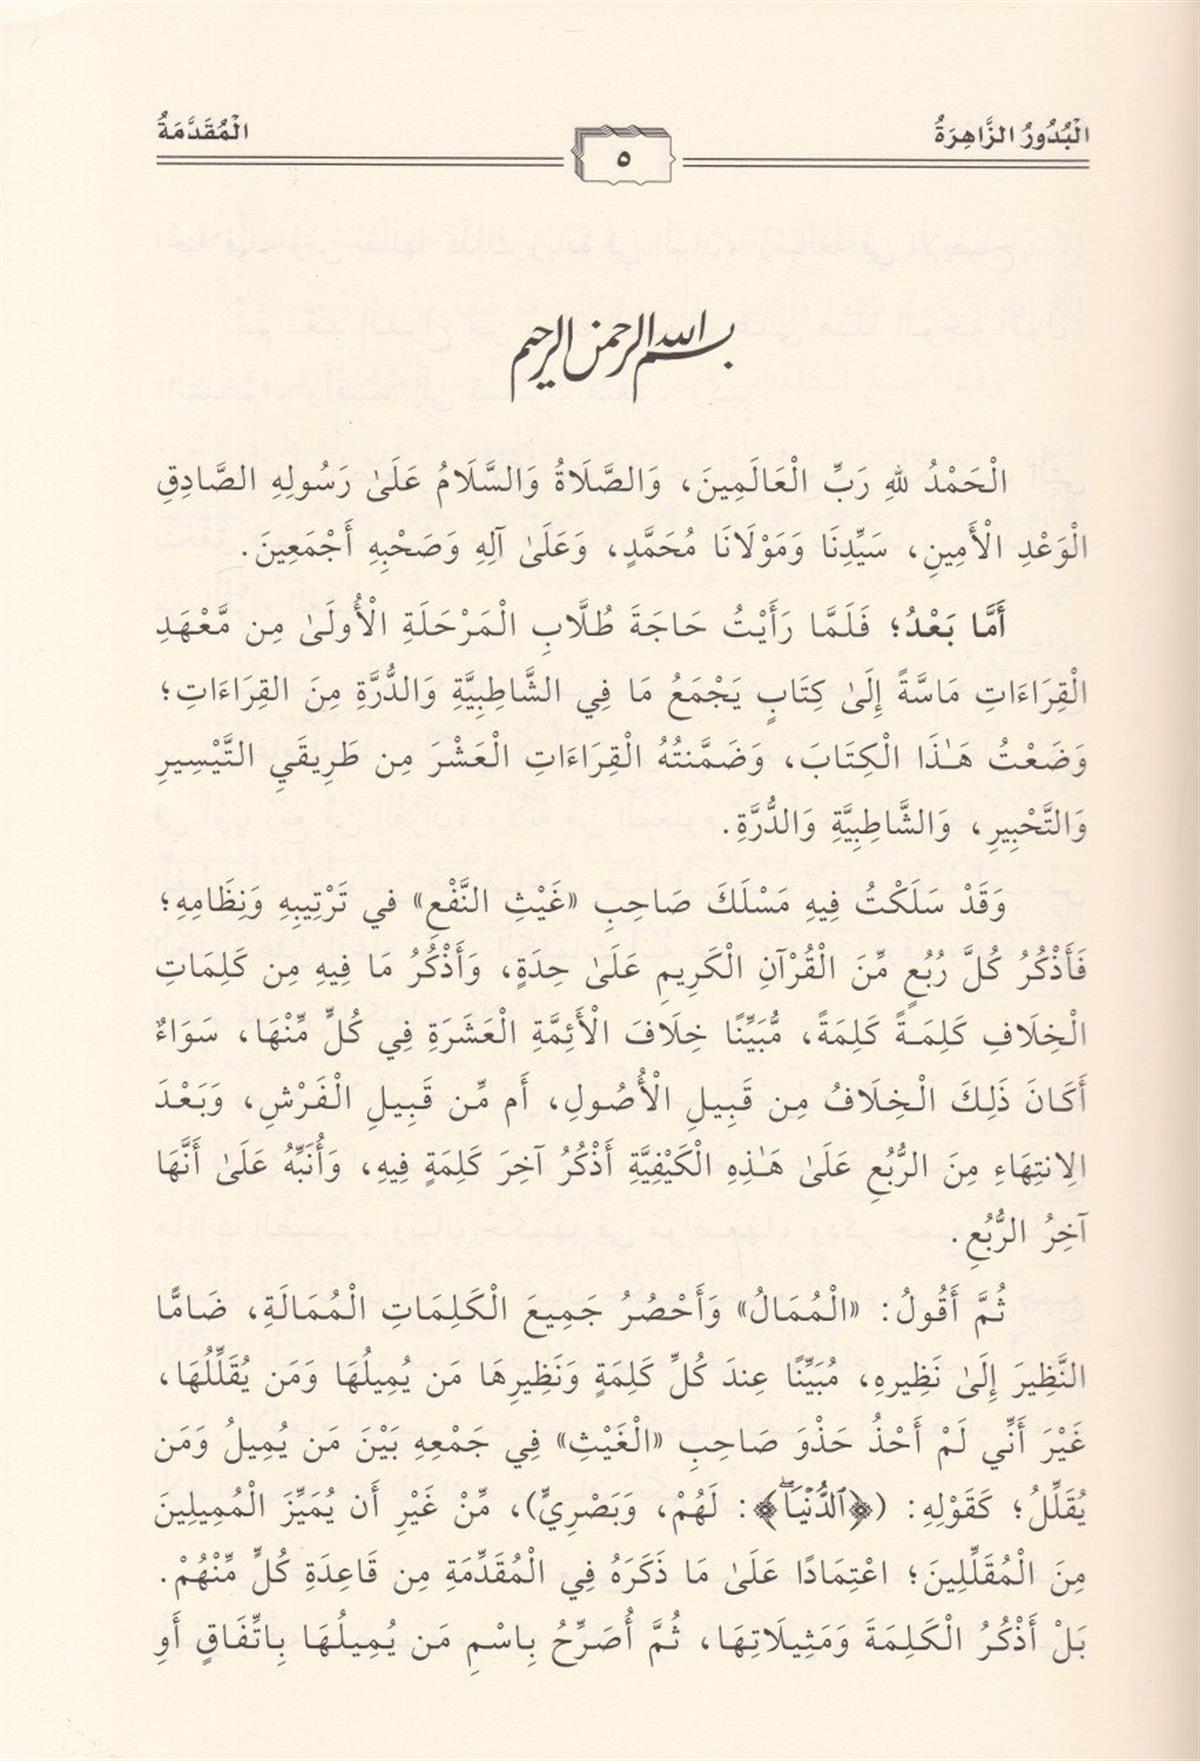 الْبُدُورُ الزَّاهِرَةُ
٥
الْمُقَدَّمَةُ
بسم الله الرحمن الرحيم
الْحَمْدُ لِلهِ رَبِّ الْعَالَمِينَ، وَالصَّلَاةُ وَالسَّلَامُ عَلَىٰ رَسُولِهِ الصَّادِقِ
الْوَعْدِ الْأَمِينِ، سَيِّدِنَا وَمَوْلَانَا مُحَمَّدٍ، وَعَلَىٰ آلِهِ وَصَحْبِهِ أَجْمَعِينَ.
أَمَّا بَعْدُ؛ فَلَمَّا رَأَيْتُ حَاجَةَ طُلَّابِ الْمَرْحَلَةِ الْأُولَىٰ مِن مَّعْهَدِ
الْقِرَاءَاتِ مَاسَّةً إِلَىٰ كِتَابٍ يَجْمَعُ مَا فِي الشَّاطِبِيَّةِ وَالدُّرَّةِ مِنَ الْقِرَاءَاتِ؛
وَضَعْتُ هَـٰذَا الْكِتَابَ، وَضَمَّنتُهُ الْقِرَاءَاتِ الْعَشْرَ مِن طَرِيقَيِ التَّيْسِيرِ
وَالتَّحْبِيرِ، وَالشَّاطِبِيَّةِ وَالدُّرَّةِ.
وَقَدْ سَلَكْتُ فِيهِ مَسْلَكَ صَاحِبِ «غَيْثِ النَّفْعِ» في تَرْتِيبِهِ وَنِظَامِهِ؛
فَأَذْكُرُ كُلَّ رُبُعٍ مِّنَ الْقُرْآنِ الْكَرِيمِ عَلَىٰ حِدَةٍ، وَأَذْكُرُ مَا فِيهِ مِن كَلِمَاتِ
الْخِلَافِ كَلِمَةً كَلِمَةً، مُّبَيِّنًا خِلَافَ الْأَئِمَّةِ الْعَشَرَةِ فِي كُلٍّ مِّنْهَا، سَوَاءٌ
أَكَانَ ذَلِكَ الْخِلَافُ مِن قَبِيلِ الْأُصُولِ، أَم مِّن قَبِيلِ الْفَرْشِ، وَبَعْدَ
الِانتِهَاءِ مِنَ الرُّبُعِ عَلَىٰ هَـٰذِهِ الْكَيْفِيَّةِ أَذْكُرُ آخِرَ كَلِمَةٍ فِيهِ، وَأُنَبِّهُ عَلَىٰ أَنَّهَا
آخِرُ الرُّبُعِ.
ثُمَّ أَقُولُ: «الْمُمَالُ» وَأَحْصُرُ جَمِيعَ الْكَلِمَاتِ الْمُمَالَةِ، ضَامًّا
النَّظِيرَ إِلَىٰ نَظِيرِهِ، مُبَيِّنًا عِندَ كُلِّ كَلِمَةٍ وَنَظِيرِهَا مَن يُمِيلُهَا وَمَن يُقَلِّلُهَا،
غَيْرَ أَنِّي لَمْ أَحْذُ حَذْوَ صَاحِبِ «الْغَيْثِ» فِي جَمْعِهِ بَيْنَ مَن يُمِيلُ وَمَن
يُقَلِّلُ؛ كَقَوْلِهِ: (﴿ٱلدُّنْيَا﴾: لَهُمْ، وَبَصْرِيٍّ)، مِّنْ غَيْرِ أَن يُمَيِّزَ الْمُمِيلِينَ
مِنَ الْمُقَلِّلِينَ؛ اعْتِمَادًا عَلَىٰ مَا ذَكَرَهُ فِي الْمُقَدِّمَةِ مِن قَاعِدَةِ كُلٍّ مِّنْهُمْ.
بَلْ أَذْكُرُ الْكَلِمَةَ وَمَثِيلَاتِهَا، ثُمَّ أُصَرِّحُ بِاسْمِ مَن يُمِيلُهَا بِاتِّفَاقٍ أَوِ